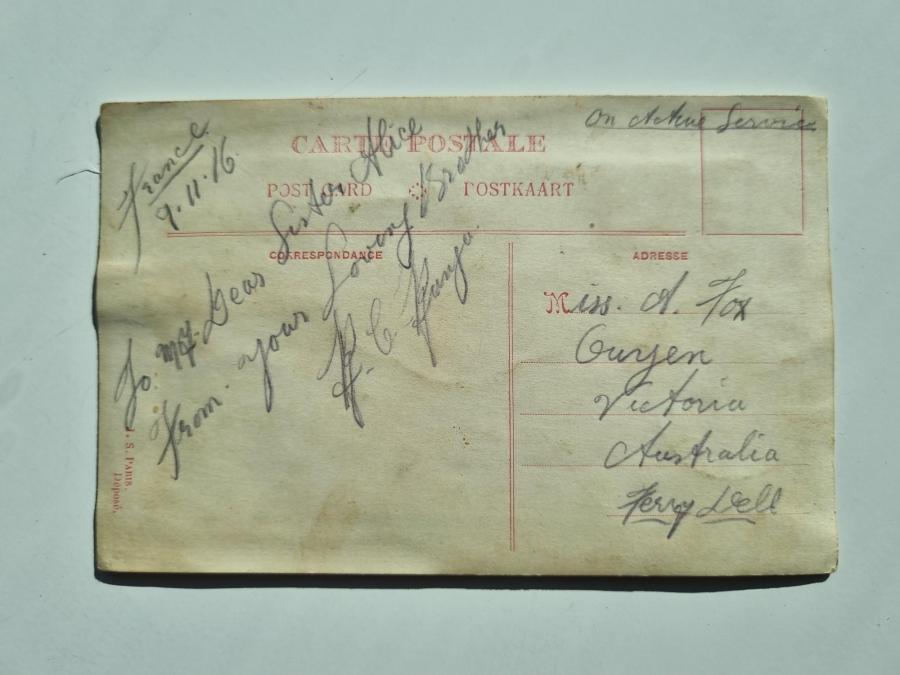 On Active Service
France
9.11.16
CARTE POSTALE
POST CARD POSTKAART
CORRESPONDANCE
To My Dear Sister Alice
From your Loving Brother
H. C
ADRESSE
Miss. A. Fox
Ouyen
Victoria
Australia
Ferny Dell
J. S. PARIS.
Déposé.